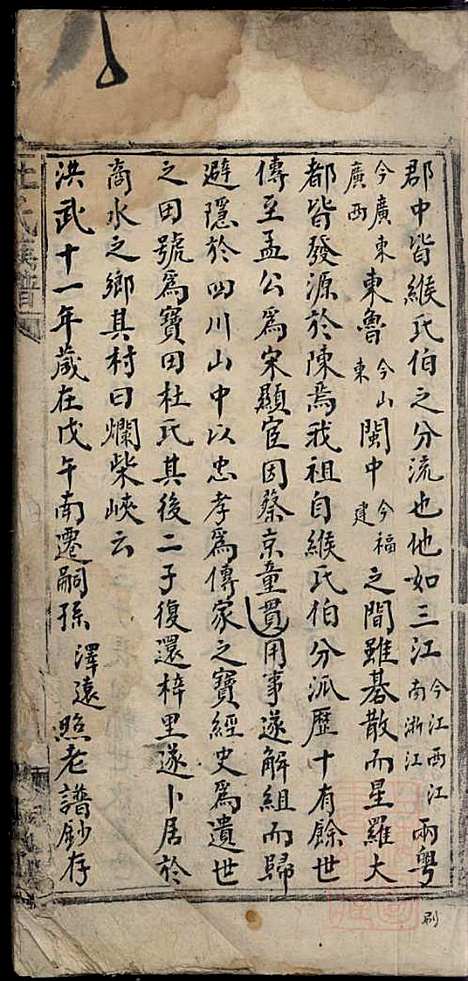 郡中皆緱氏伯之分流也他如三江今江西江南浙江兩粵
今廣東廣西東魯今山東閩中今福建之間雖碁散而星羅大
都皆發源於陳焉我祖自緱氏伯分派歷十有餘世
傳至孟公為宋顯宦因蔡京童貫用事遂解組而歸
避隱於四川山中以忠孝為傳家之寶經史為遺世
之田號為寶田杜氏其後二子復還梓里遂卜居於
商水之鄉其村曰爛柴峽云
洪武十一年歲在戊午南遷嗣孫澤遠照老譜鈔存
杜氏族譜
刷